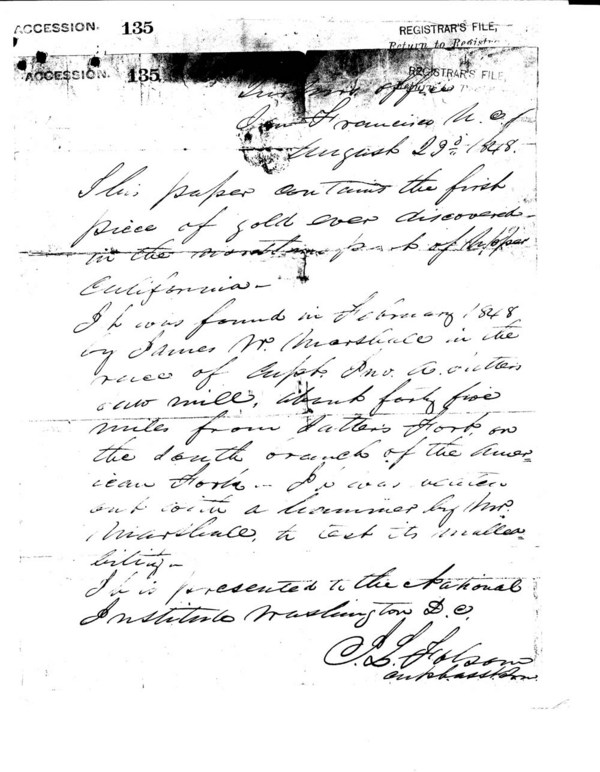 ACCESSION. 135 REGISTRAR'S FILE,
Return to Registrar
ACCESSION. 135 REGISTRAR'S FILE,
office
San Francisco U. C.
August 23d. 1848.
This paper contains the first
piece of gold ever discovered
in the northern part of Upper
California —
It was found in February 1848
by James W. Marshall in the
race of Capt. Jno. A. Sutters
saw mill, about forty five
miles from Sutters Fort, on
the South branch of the Amer-
ican Fork — It was beaten
out with a hammer by Mr.
Marshall, to test its mallea-
bility —
It is presented to the National
Institute Washington D. C.
J. L. Folsom